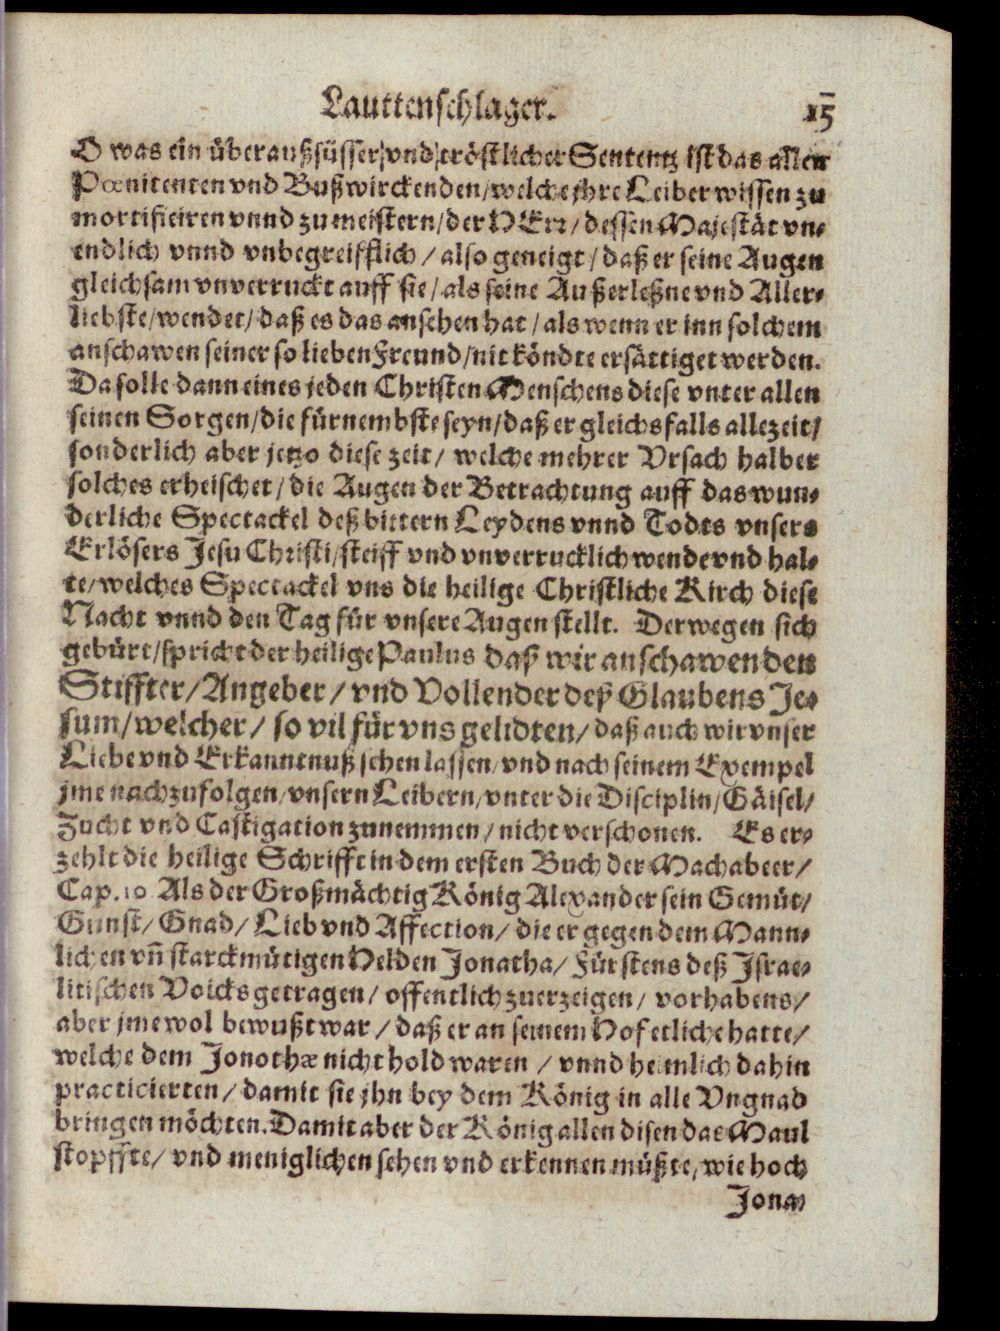 Lauttenschlager. 15
O was ein überaußsüsser/vnd tröstlicher Sententz ist das allen
Pœnitenten vnd Bußwirckenden/welche jhre Leiber wissen zu
mortificiren vnnd zu meistern/der HErr/dessen Majestät vn-
endlich vnnd vnbegreifflich/also geneigt/daß er seine Augen
gleichsam vnverruckt auff sie/als seine Außerleßne vnd Aller-
liebste/wendet/daß es das ansehen hat/als wenn er inn solchem
anschawen seiner so lieben Freund/nit köndte ersättiget werden.
Da solle dann eines jeden Christen Menschens diese vnter allen
seinen Sorgen/die fürnembste seyn/daß er gleichsfalls allezeit/
sonderlich aber jetzo diese zeit/welche mehrer Vrsach halber
solches erheischet/die Augen der Betrachtung auff das wun-
derliche Spectackel deß bittern Leydens vnnd Todts vnsers
Erlösers Jesu Christi/steiff vnd vnverrucklich wende vnd hal-
te/welches Spectackel vns die heilige Christliche Kirch diese
Nacht vnnd den Tag für vnsere Augen stellt. Derwegen sich
gebürt/spricht der heilige Paulus daß wir anschawen den
Stiffter/Angeber/vnd Vollender deß Glaubens Je-
sum/welcher/so vil für vns gelidten/daß auch wir vnser
Liebe vnd Erkanntnuß sehen lassen/vnd nach seinem Exempel
jme nachzufolgen/vnsern Leibern/vnter die Disciplin/Gäisel/
Zucht vnd Castigation zunemmen/nicht verschonen. Es er-
zehlt die heilige Schrifft in dem ersten Buch der Machabeer/
Cap. 10 Als der Großmächtig König Alexander sein Gemüt/
Gunst/Gnad/Lieb vnd Affection/die er gegen dem Mann-
lichen vñ starckmütigen Helden Jonatha/Fürstens deß Israe-
litischen Volcks getragen/offentlich zuerzeigen/vorhabens/
aber jme wol bewußt war/daß er an seinem Hof etliche hatte/
welche dem Jonothæ nicht hold waren/vnnd heimlich dahin
practicierten/damit sie jhn bey dem König in alle Vngnad
bringen möchten. Damit aber der König allen disen dae Maul
stopffte/vnd meniglichen sehen vnd erkennen müßte/wie hoch
Jona-